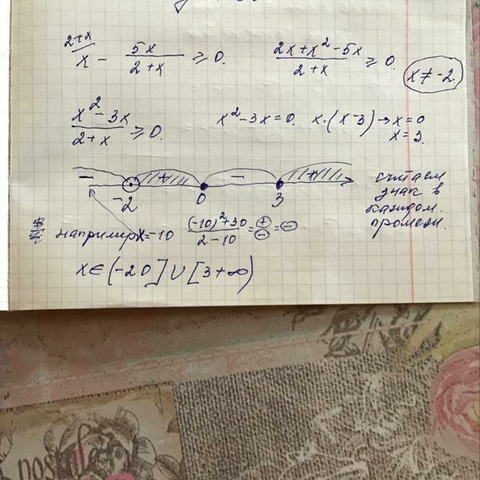 2+x/ x - 5x/(2+x) ≥ 0. (2x+x²-5x)/(2+x) ≥ 0.
x ≠ -2
(x²-3x)/(2+x) ≥ 0. x²-3x=0. x·(x-3) → x=0
x=3.
- + - +
-2 0 3
считаем
знак в
каждом
промеж.
например x=-10 ((-10)²+30)/(2-10) = +/- = -
x∈(-2 0] ∪ [3 +∞)
postale